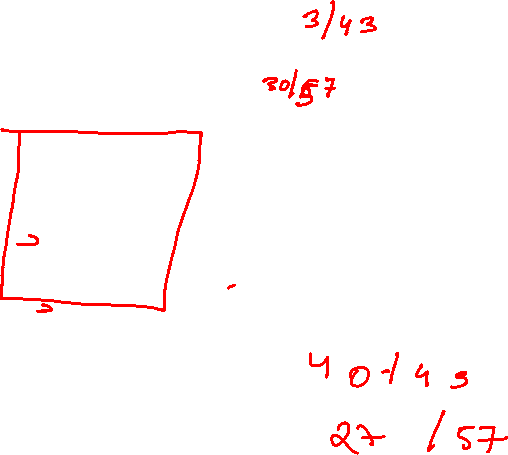 3/43
30/57
40/43
27/57